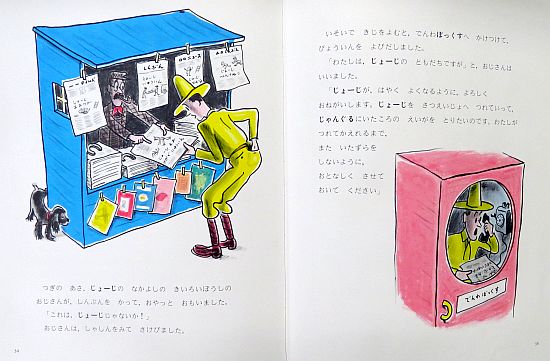 しんぶん
つぎの あさ、じょーじの なかよしの きいろいぼうしの
おじさんが、しんぶんを かって、おやっと おもいました。
「これは、じょーじじゃないか！」
おじさんは、しゃしんをみて さけびました。
34
いそいで きじをよむと、でんわぼっくすへ かけつけて、
びょういんを よびだしました。
「わたしは、じょーじの ともだちですが」と、おじさんは
いいました。
「じょーじが、はやく よくなるように、よろしく
おねがいします。じょーじを さつえいじょへ つれていって、
じゃんぐるにいたころの えいがを とりたいのです。わたしが
つれてかえれるまで、
また いたずらを
しないように、
おとなしく させて
おいて ください」
でんわぼっくす